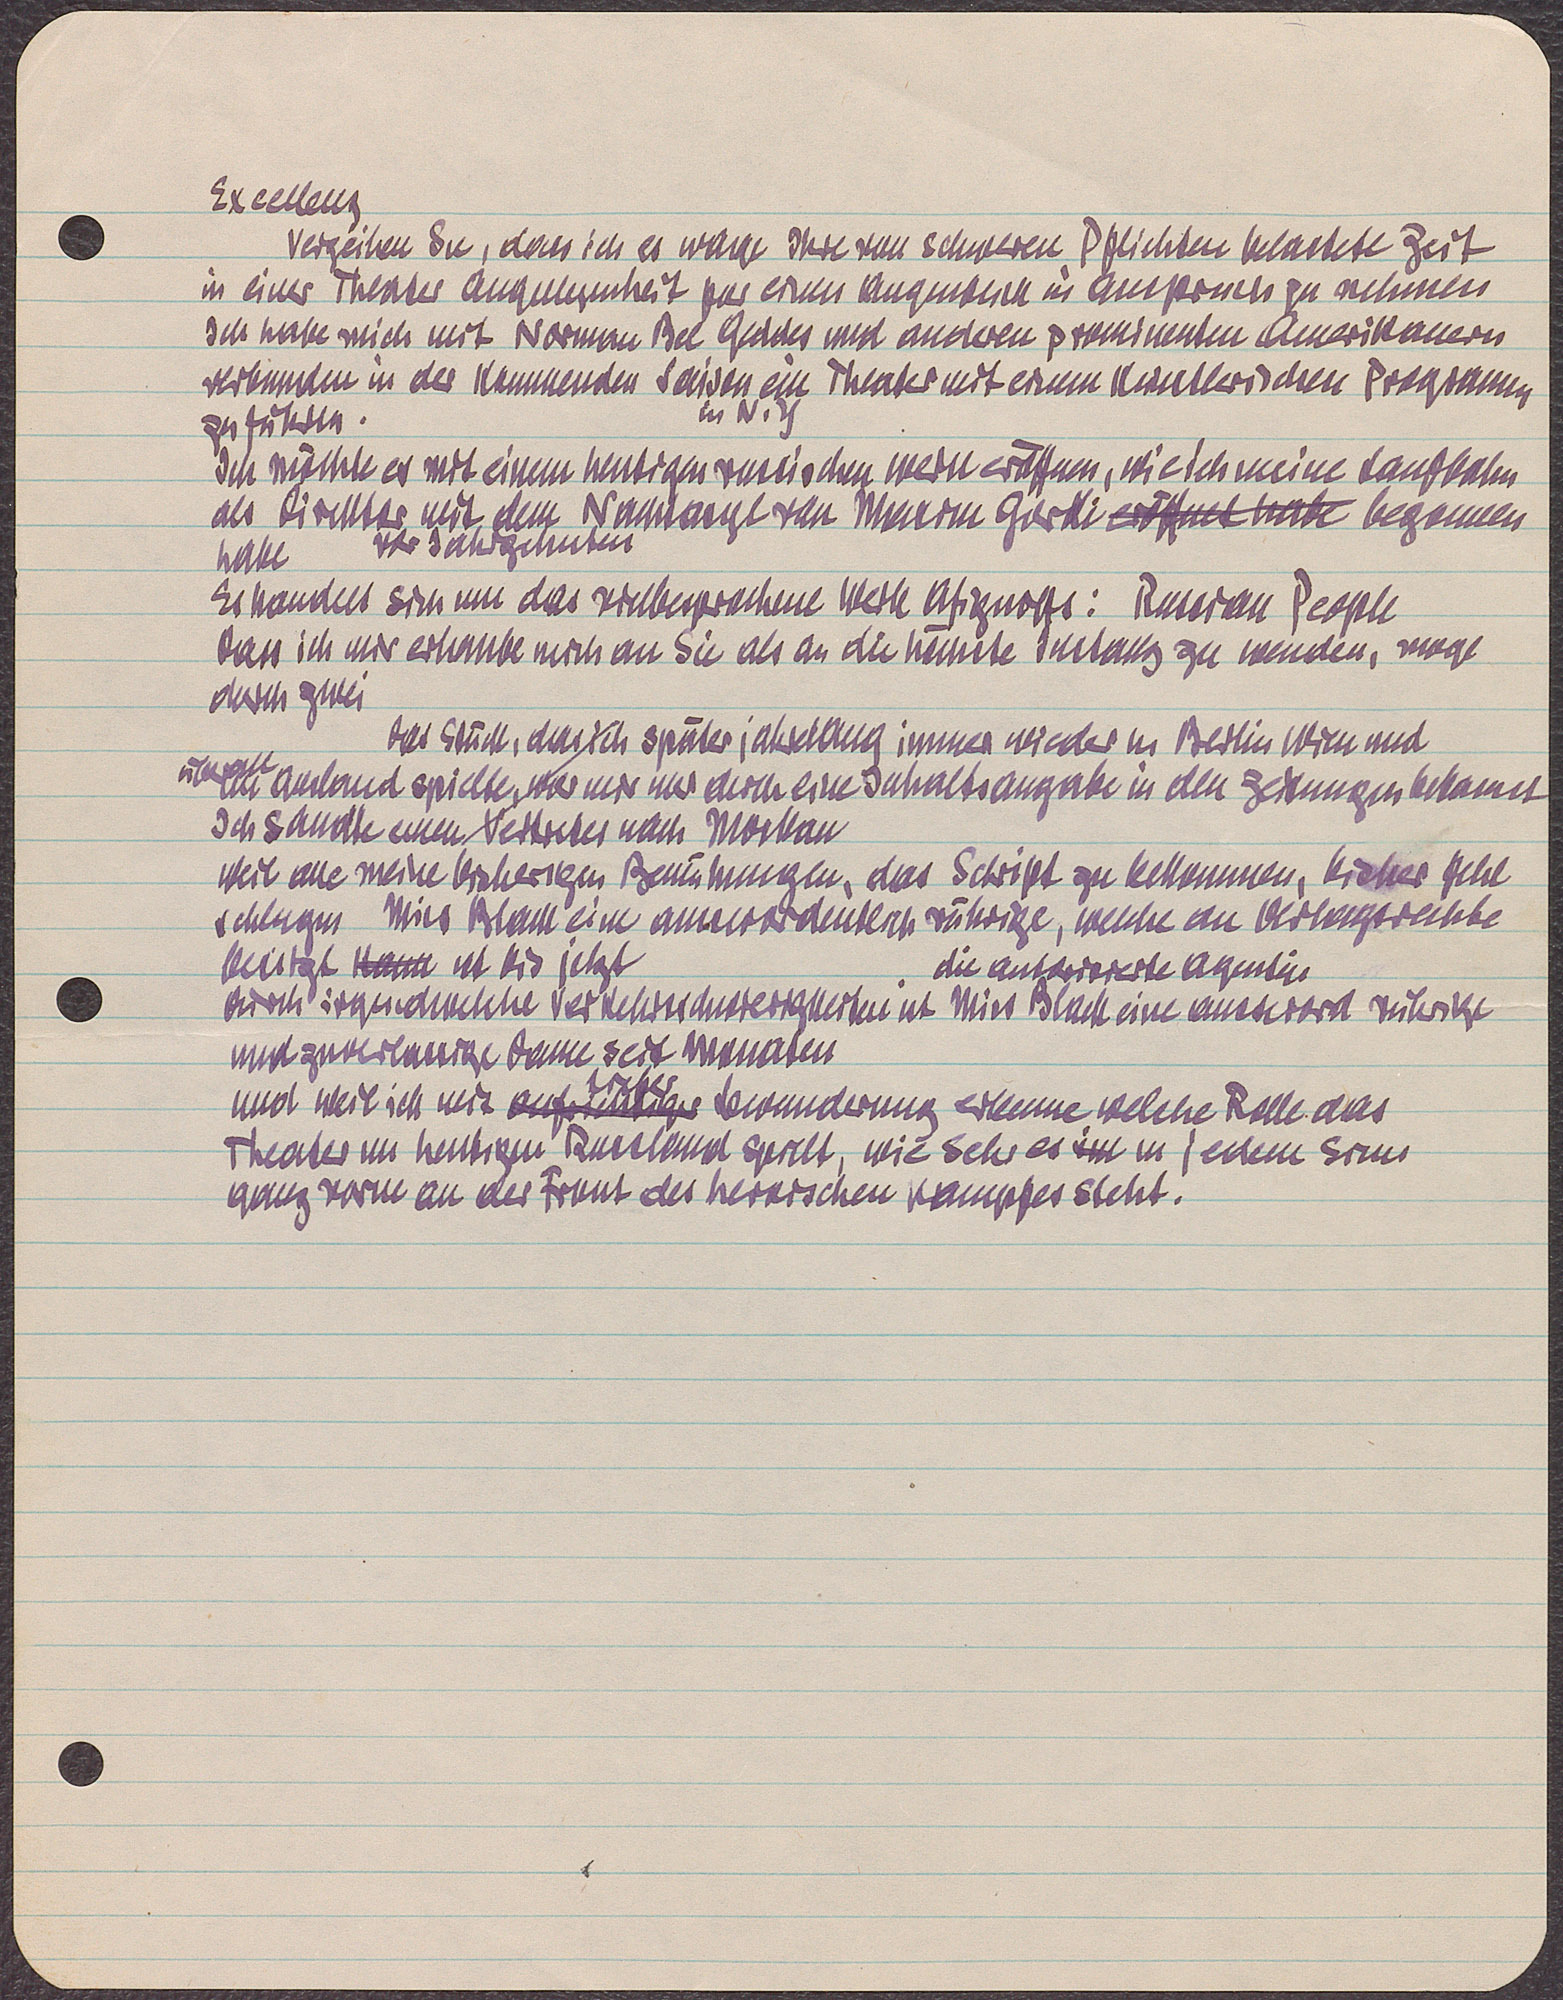 Excellenz
Verzeihen Sie, dass ich es wage Ihre von schweren Pflichten belastete Zeit
in einer Theater Angelegenheit für einen Augenblick in Anspruch zu nehmen
Ich habe mich mit Norman Bel Geddes und anderen prominenten Amerikanern
verbunden in der kommenden Saison ein Theater mit einem künstlerischen Programm
in N.Y
zu führen.
Ich möchte es mit einem heutigen russischen Werk eröffnen, wie ich meine Laufbahn
als Direktor mit dem Nachtasyl von Maxim Gorki eröffnet habe begonnen
habe vor Jahrzehnten
Es handelt sich um das vielbesprochene Werk Afignoffs: Russian People
Dass ich mir erlaube mich an Sie als an die höchste Instanz zu wenden, möge
durch zwei
Das Stück, das ich später jahrelang immer wieder in Berlin Wien und
überall
im Ausland spielte, war mir nur durch eine Inhaltsangabe in den Zeitungen bekannt
Ich sandte einen Vertreter nach Moskau
Weil alle meine bisherigen Bemühungen, das Script zu bekommen, bisher fehl
schlugen Miss Black eine ausserordentlich rührige, welche die Verlagsrechte
besitzt kann ist bis jetzt die autorisierte Agentin
Durch irgendwelche Verkehrsschwierigkeiten ist Miss Black eine ausserord rührige
und zuverlässige Dame seit Monaten
und weil ich mit aufrichtiger Bewunderung erkenne welche Rolle das
tiefer
Theater im heutigen Russland spielt, wie sehr es im in jedem Sinne
ganz vorne an der Front des heroischen Kampfes steht.